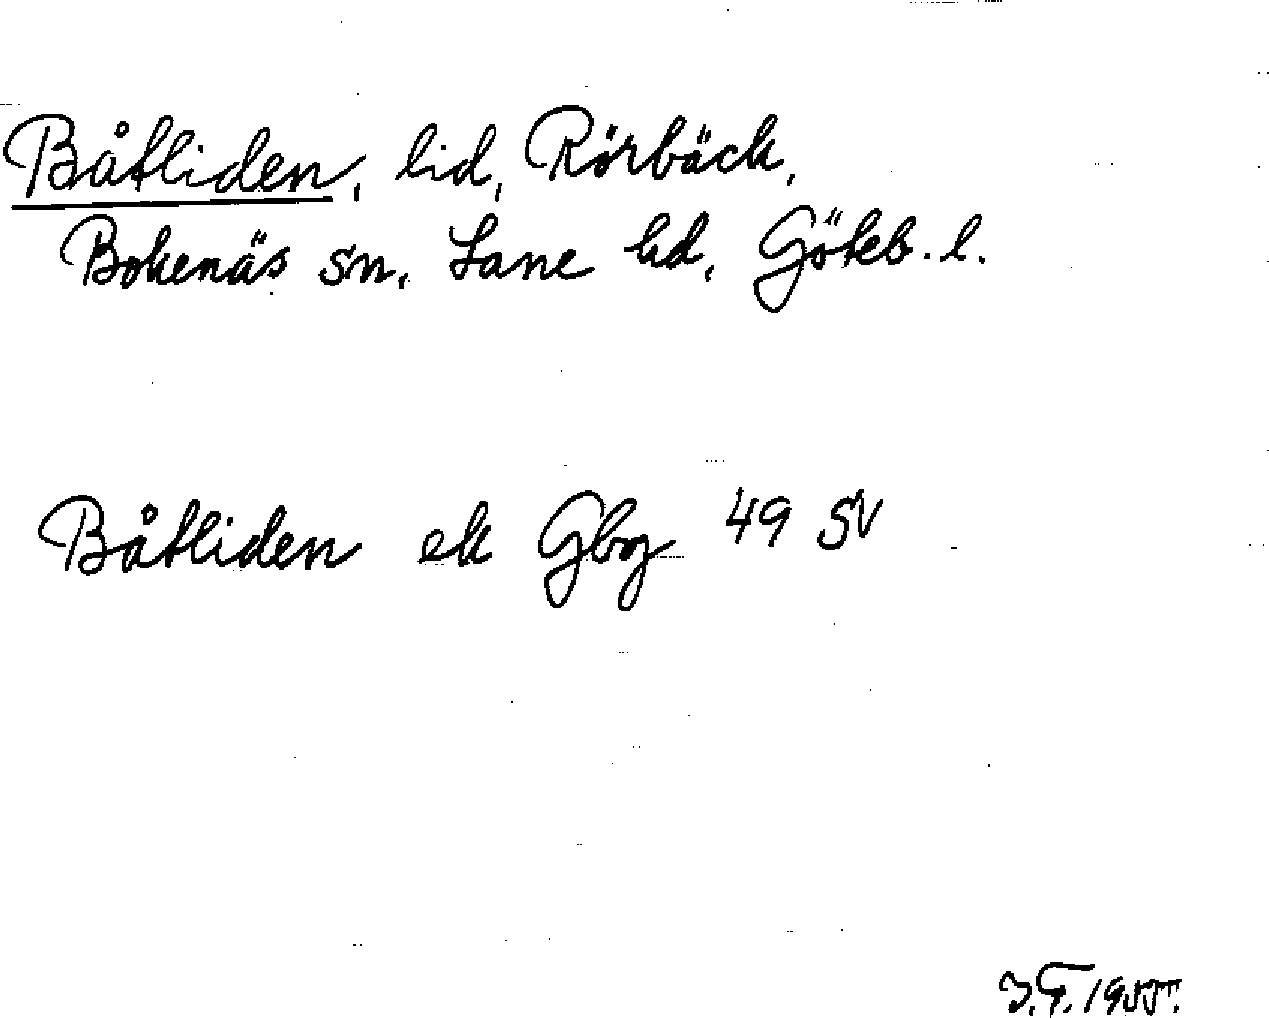 Båtliden, lid, Rörbäck,
Bokenäs sn, Lane hd, Göteb. l.
Båtliden ek Gbg 49 SV
J.F. 1955.